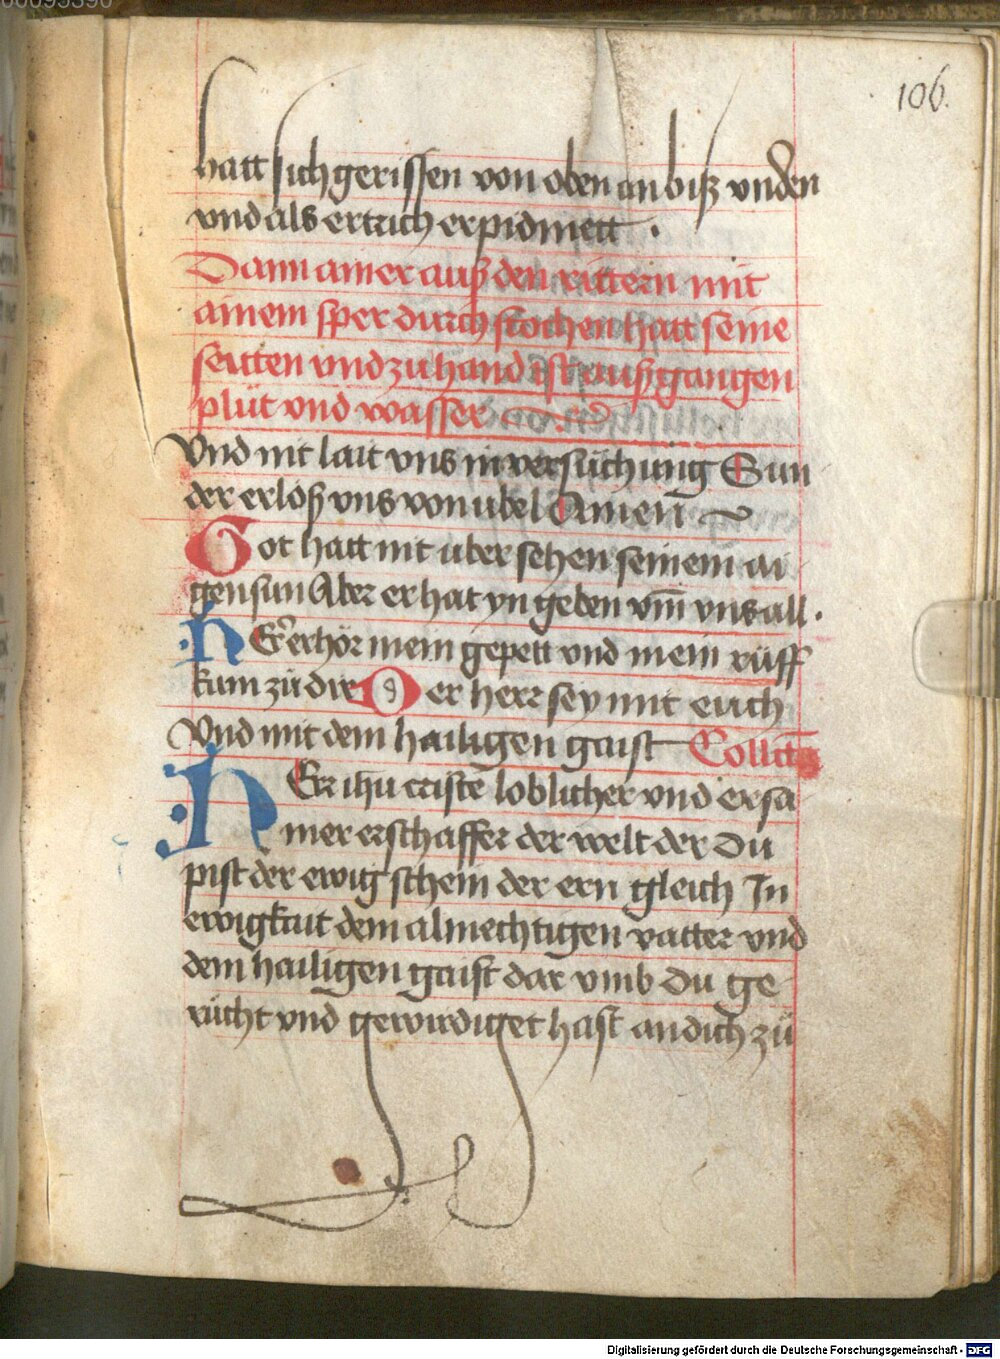 00095390
106.
hatt sich gerissen von oben an biß vnden
vnd als ertrich erpidmett .
Dann ainer auß den rittern mit
ainem sper durch stochen hatt seine
seitten vnd zu hand ist außgangen
plüt vnd wasser
Vnd nit lait vns in versüchung Sun
der erlöß vns von übel Amen
Got hatt nit uber sehen seinem ai
gen sun Aber er hat yn geben vm̄ vns all .
HEr erhör mein gepett vnd mein rüff
kum zü dir Der herr sey mit euch
Vnd mit dem hailigen gaist Collect
HEr ihu criste loblicher vnd ersa
mer erschaffer der welt der Du
pist der ewig schein der ern gleich In
ewigkait dem almechtigen vatter vnd
dem hailigen gaist dar vmb Du ge
rücht vnd gewirdiget hast an dich zü
Digitalisierung gefördert durch die Deutsche Forschungsgemeinschaft - DFG